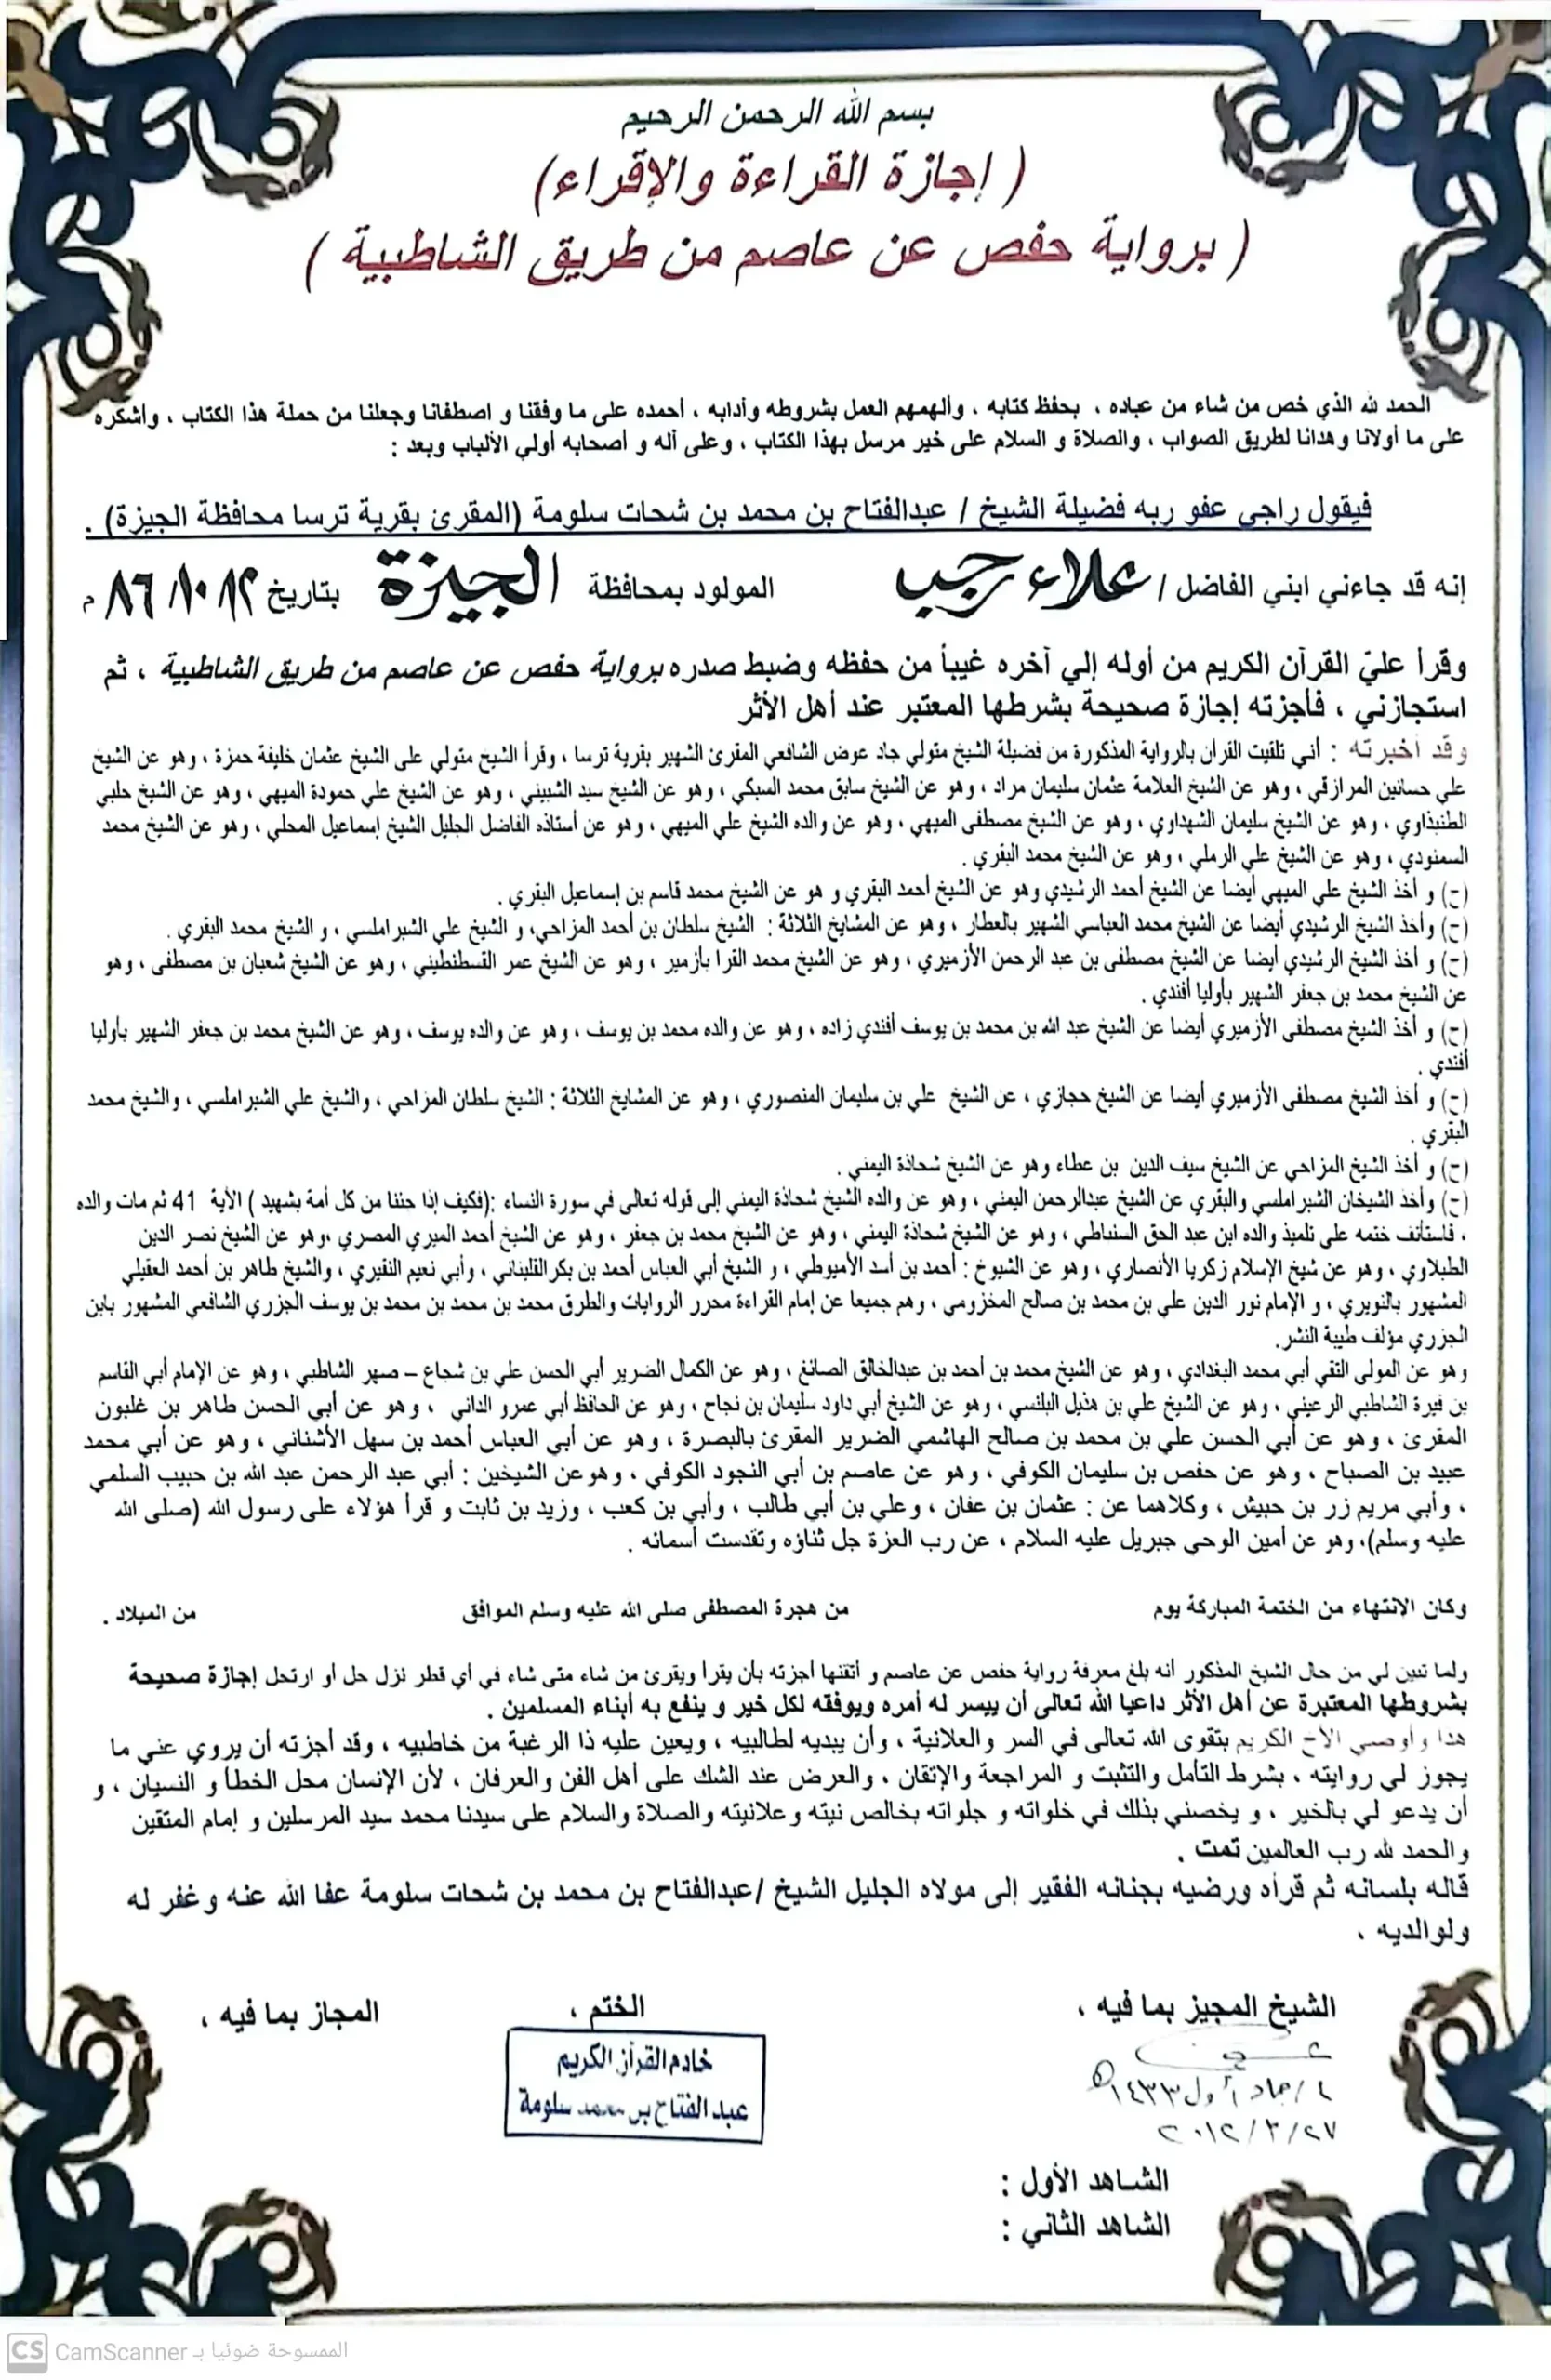 بسم الله الرحمن الرحيم
( إجازة القراءة والإقراء)
( برواية حفص عن عاصم من طريق الشاطبية )
الحمد لله الذي خص من شاء من عباده ، بحفظ كتابه ، وألهمهم العمل بشروطه وأدابه ، أحمده على ما وفقنا و اصطفانا وجعلنا من حملة هذا الكتاب ، وأشكره
على ما أولانا وهدانا لطريق الصواب ، والصلاة و السلام على خير مرسل بهذا الكتاب ، وعلى آله و أصحابه أولي الألباب وبعد :
فيقول راجي عفو ربه فضيلة الشيخ / عبدالفتاح بن محمد بن شحات سلومة (المقرئ بقرية ترسا محافظة الجيزة) .
إنه قد جاءني ابني الفاضل / علاء رجب المولود بمحافظة الجيزة بتاريخ ١٢/ ١٠/ ٨٦ م
وقرأ عليّ القرآن الكريم من أوله إلي آخره غيباً من حفظه وضبط صدره برواية حفص عن عاصم من طريق الشاطبية ، ثم
استجازني ، فأجزته إجازة صحيحة بشرطها المعتبر عند أهل الأثر
وقد أخبرته : أني تلقيت القرأن بالرواية المذكورة من فضيلة الشيخ متولي جاد عوض الشافعي المقرئ الشهير بقرية ترسا ، وقرأ الشيخ متولي على الشيخ عثمان خليفة حمزة ، وهو عن الشيخ
علي حسانين المرازقي ، وهو عن الشيخ العلامة عثمان سليمان مراد ، وهو عن الشيخ سابق محمد السبكي ، وهو عن الشيخ سيد الشبيني ، وهو عن الشيخ علي حمودة الميهي ، وهو عن الشيخ حلبي
الطنبذاوي ، وهو عن الشيخ سليمان الشهداوي ، وهو عن الشيخ مصطفى الميهي ، وهو عن والده الشيخ علي الميهي ، وهو عن أستاذه الفاضل الجليل الشيخ إسماعيل المحلي ، وهو عن الشيخ محمد
السمنودي ، وهو عن الشيخ علي الرملي ، وهو عن الشيخ محمد البقري .
(ح) و أخذ الشيخ علي الميهي أيضا عن الشيخ أحمد الرشيدي وهو عن الشيخ أحمد البقري و هو عن الشيخ محمد قاسم بن إسماعيل البقري .
(ح) وأخذ الشيخ الرشيدي أيضا عن الشيخ محمد العباسي الشهير بالعطار ، وهو عن المشايخ الثلاثة : الشيخ سلطان بن أحمد المزاحي، و الشيخ علي الشبراملسي ، و الشيخ محمد البقري .
(ح) و أخذ الشيخ الرشيدي أيضا عن الشيخ مصطفى بن عبد الرحمن الأزميري ، وهو عن الشيخ محمد القرا بأزمير ، وهو عن الشيخ عمر القسطنطيني ، وهو عن الشيخ شعبان بن مصطفى ، وهو
عن الشيخ محمد بن جعفر الشهير بأوليا أفندي .
(ح) و أخذ الشيخ مصطفى الأزميري أيضا عن الشيخ عبد الله بن محمد بن يوسف أفندي زاده ، وهو عن والده محمد بن يوسف ، وهو عن والده يوسف ، وهو عن الشيخ محمد بن جعفر الشهير بأوليا
أفندي .
(ح) و أخذ الشيخ مصطفى الأزميري أيضا عن الشيخ حجازي ، عن الشيخ علي بن سليمان المنصوري ، وهو عن المشايخ الثلاثة : الشيخ سلطان المزاحي ، والشيخ علي الشبراملسي ، والشيخ محمد
البقري .
(ح) و أخذ الشيخ المزاحي عن الشيخ سيف الدين بن عطاء وهو عن الشيخ شحاذة اليمني .
(ح) وأخذ الشيخان الشبراملسي والبقري عن الشيخ عبدالرحمن اليمني ، وهو عن والده الشيخ شحاذة اليمني إلى قوله تعالى في سورة النساء :(فكيف إذا جئنا من كل أمة بشهيد ) الأية 41 ثم مات والده
، فاستأنف ختمه على تلميذ والده ابن عبد الحق السنباطي ، وهو عن الشيخ شحاذة اليمني ، وهو عن الشيخ محمد بن جعفر ، وهو عن الشيخ أحمد الميري المصري ،وهو عن الشيخ نصر الدين
الطبلاوي ، وهو عن شيخ الإسلام زكريا الأنصاري ، وهو عن الشيوخ : أحمد بن أسد الأميوطي ، و الشيخ أبي العباس أحمد بن بكر القلبناني ، وأبي نعيم النقيري ، والشيخ طاهر بن أحمد العقيلي
المشهور بالنويري ، و الإمام نور الدين علي بن محمد بن صالح المخزومي ، وهم جميعا عن إمام القراءة محرر الروايات والطرق محمد بن محمد بن محمد بن يوسف الجزري الشافعي المشهور بابن
الجزري مؤلف طيبة النشر.
وهو عن المولى التقي أبي محمد البغدادي ، وهو عن الشيخ محمد بن أحمد بن عبدالخالق الصائغ ، وهو عن الكمال الضرير أبي الحسن علي بن شجاع – صهر الشاطبي ، وهو عن الإمام أبي القاسم
بن فيرة الشاطبي الرعيني ، وهو عن الشيخ علي بن هذيل البلنسي ، وهو عن الشيخ أبي داود سليمان بن نجاح ، وهو عن الحافظ أبي عمرو الداني ، وهو عن أبي الحسن طاهر بن غلبون
المقرئ ، وهو عن أبي الحسن علي بن محمد بن صالح الهاشمي الضرير المقرئ بالبصرة ، وهو عن أبي العباس أحمد بن سهل الأشناني ، وهو عن أبي محمد
عبيد بن الصباح ، وهو عن حفص بن سليمان الكوفي ، وهو عن عاصم بن أبي النجود الكوفي ، وهوعن الشيخين : أبي عبد الرحمن عبد الله بن حبيب السلمي
، وأبي مريم زر بن حبيش ، وكلاهما عن : عثمان بن عفان ، وعلي بن أبي طالب ، وأبي بن كعب ، وزيد بن ثابت و قرأ هؤلاء على رسول الله (صلى الله
عليه وسلم)، وهو عن أمين الوحي جبريل عليه السلام ، عن رب العزة جل ثناؤه وتقدست أسمائه .
وكان الإنتهاء من الختمة المباركة يوم من هجرة المصطفى صلى الله عليه وسلم الموافق من الميلاد .
ولما تبين لي من حال الشيخ المذكور أنه بلغ معرفة رواية حفص عن عاصم و أتقنها أجزته بأن يقرأ ويقرئ من شاء متى شاء في أي قطر نزل حل أو ارتحل إجازة صحيحة
بشروطها المعتبرة عن أهل الأثر داعيا الله تعالى أن ييسر له أمره ويوفقه لكل خير و ينفع به أبناء المسلمين .
هذا وأوصي الأخ الكريم بتقوى الله تعالى في السر والعلانية ، وأن يبديه لطالبيه ، ويعين عليه ذا الرغبة من خاطبيه ، وقد أجزته أن يروي عني ما
يجوز لي روايته ، بشرط التأمل والتثبت و المراجعة والإتقان ، والعرض عند الشك على أهل الفن والعرفان ، لأن الإنسان محل الخطأ و النسيان ، و
أن يدعو لي بالخير ، و يخصني بذلك في خلواته و جلواته بخالص نيته وعلانيته والصلاة والسلام على سيدنا محمد سيد المرسلين و إمام المتقين
والحمد لله رب العالمين تمت .
قاله بلسانه ثم قرأه ورضيه بجنانه الفقير إلى مولاه الجليل الشيخ /عبدالفتاح بن محمد بن شحات سلومة عفا الله عنه وغفر له
ولوالديه ،
الشيخ المجيز بما فيه ، الختم ، المجاز بما فيه ،
خادم القرآن الكريم
عبد الفتاح بن محمد سلومة
٤/ جماد أول ١٤٣٣ هـ
٢٠١٢/٣/٢٧
الشاهد الأول :
الشاهد الثاني :
CS CamScanner الممسوحة ضوئيا بـ